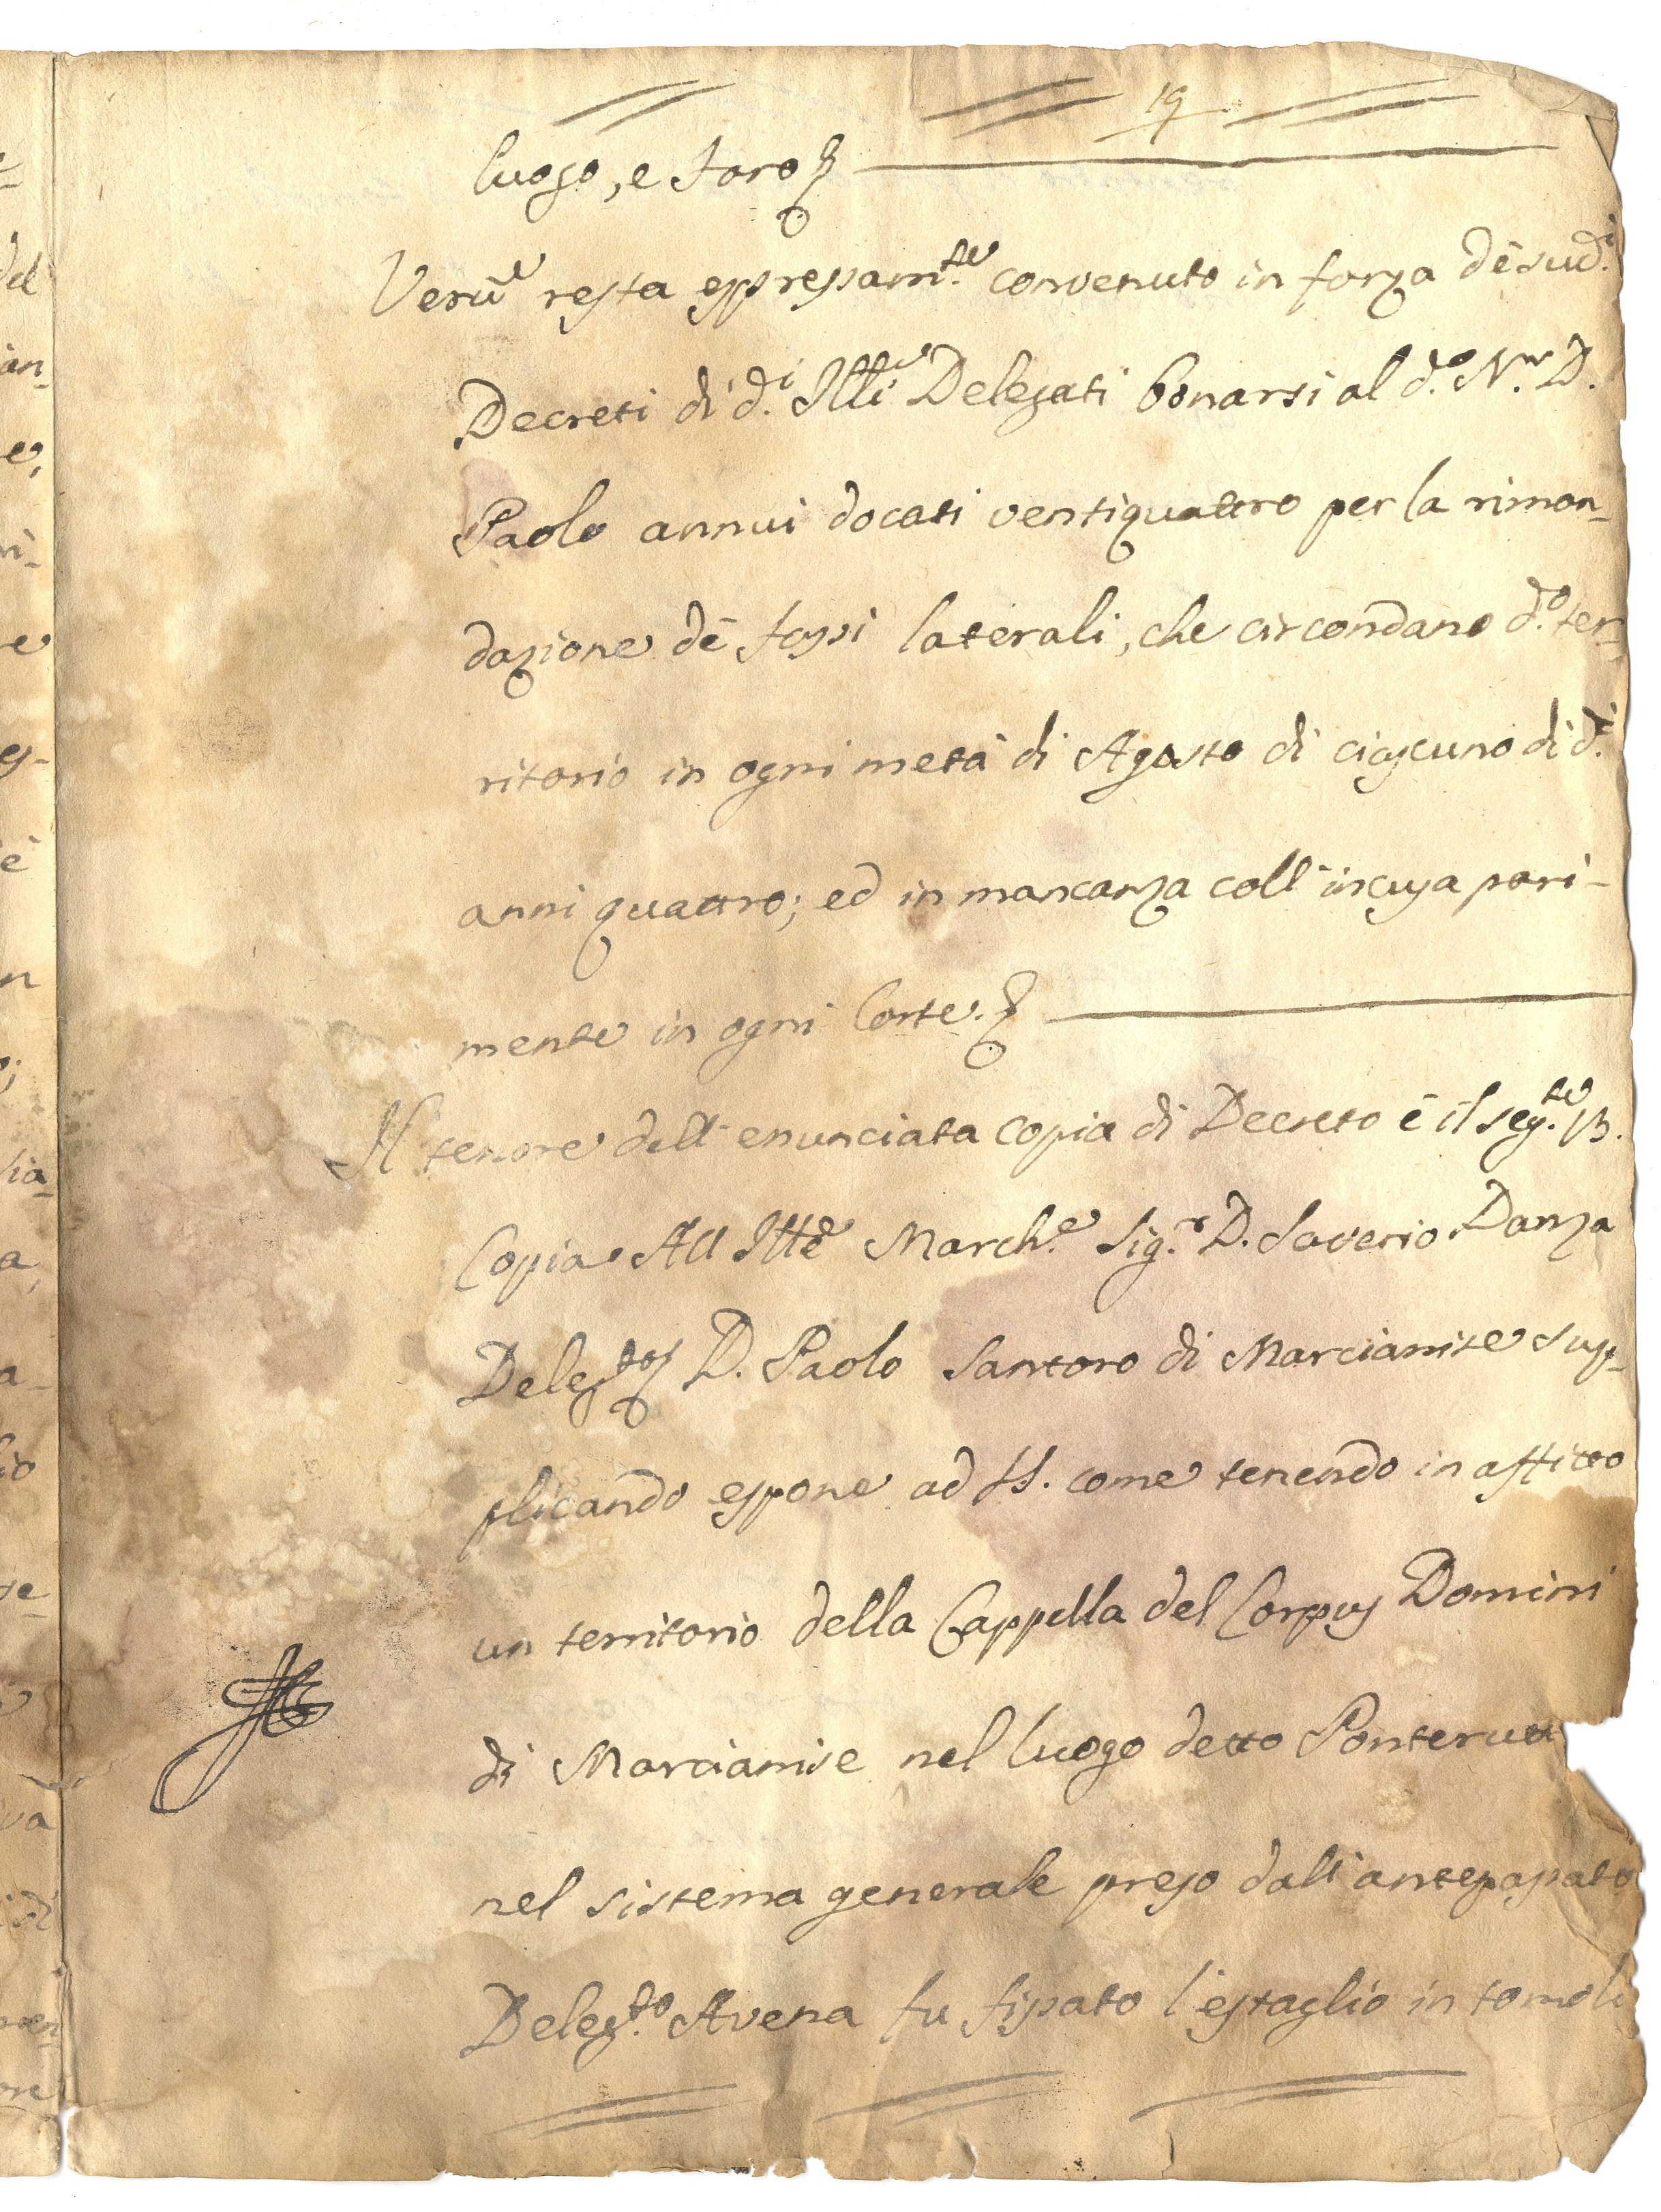 19
luogo, e foro
Verũ resta espressam.te convenuto in forza dè sud.i
Decreti di d.i Ill.i Delegati bonarsi al d.o N.r D.
Paolo annui docati ventiquattro per la rimon-
dazione dè fossi laterali, che circondano d.o ter-
ritorio in ogni metà di Agosto di ciascuno di d.i
anni quattro; ed in mancanza coll'incusa pari-
mente in ogni Corte.
Il tenore dell'enunciata copia di Decreto è il seg.te
Copia All Ill.e March.e Sig.r D. Saverio Danza
Deleg.to D. Paolo Santoro di Marcianise sup-
plicando espone ad come tenendo in affitto
un territorio della Cappella del Corpus Domini
di Marcianise nel luogo detto Ponterutt
nel sistema generale preso dall'antepassato
Deleg.to Avena fu fissato l'estaglio in tomoli